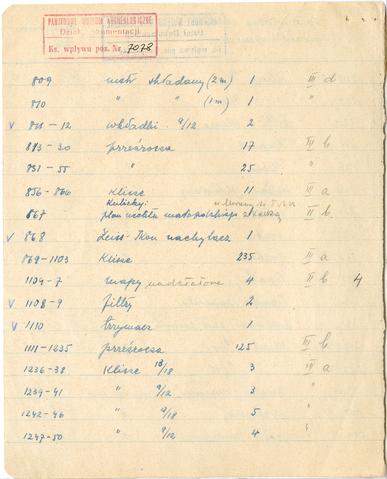 PAŃSTWOWE MUZEUM ARCHEOLOGICZNE
Dział Dokumentacji
Ks. wpływu poz. Nr 7078
809 metr składany (2m) 1 III d
810 " " (1m) 1 "
v 811-12 wkładki 9/12 2
813-30 przeźrocza 17 III b
831-55 " 25 "
856-866 Klisze 11 III a
Kulickiej:
867 plan 1 II b
v 868 Zeiss-Ikon 1
869-1103 Klisze 235 III a
1104-7 mapy nadesłane 4 II b 4
v 1108-9 filtry 2
v 1110 trzymacz 1
1111-1235 przeźrocza 125 III b
1236-38 Klisze 18/18 3 III a
1239-41 " 9/12 3 "
1242-46 " 9/18 5 "
1247-50 " 9/12 4 "